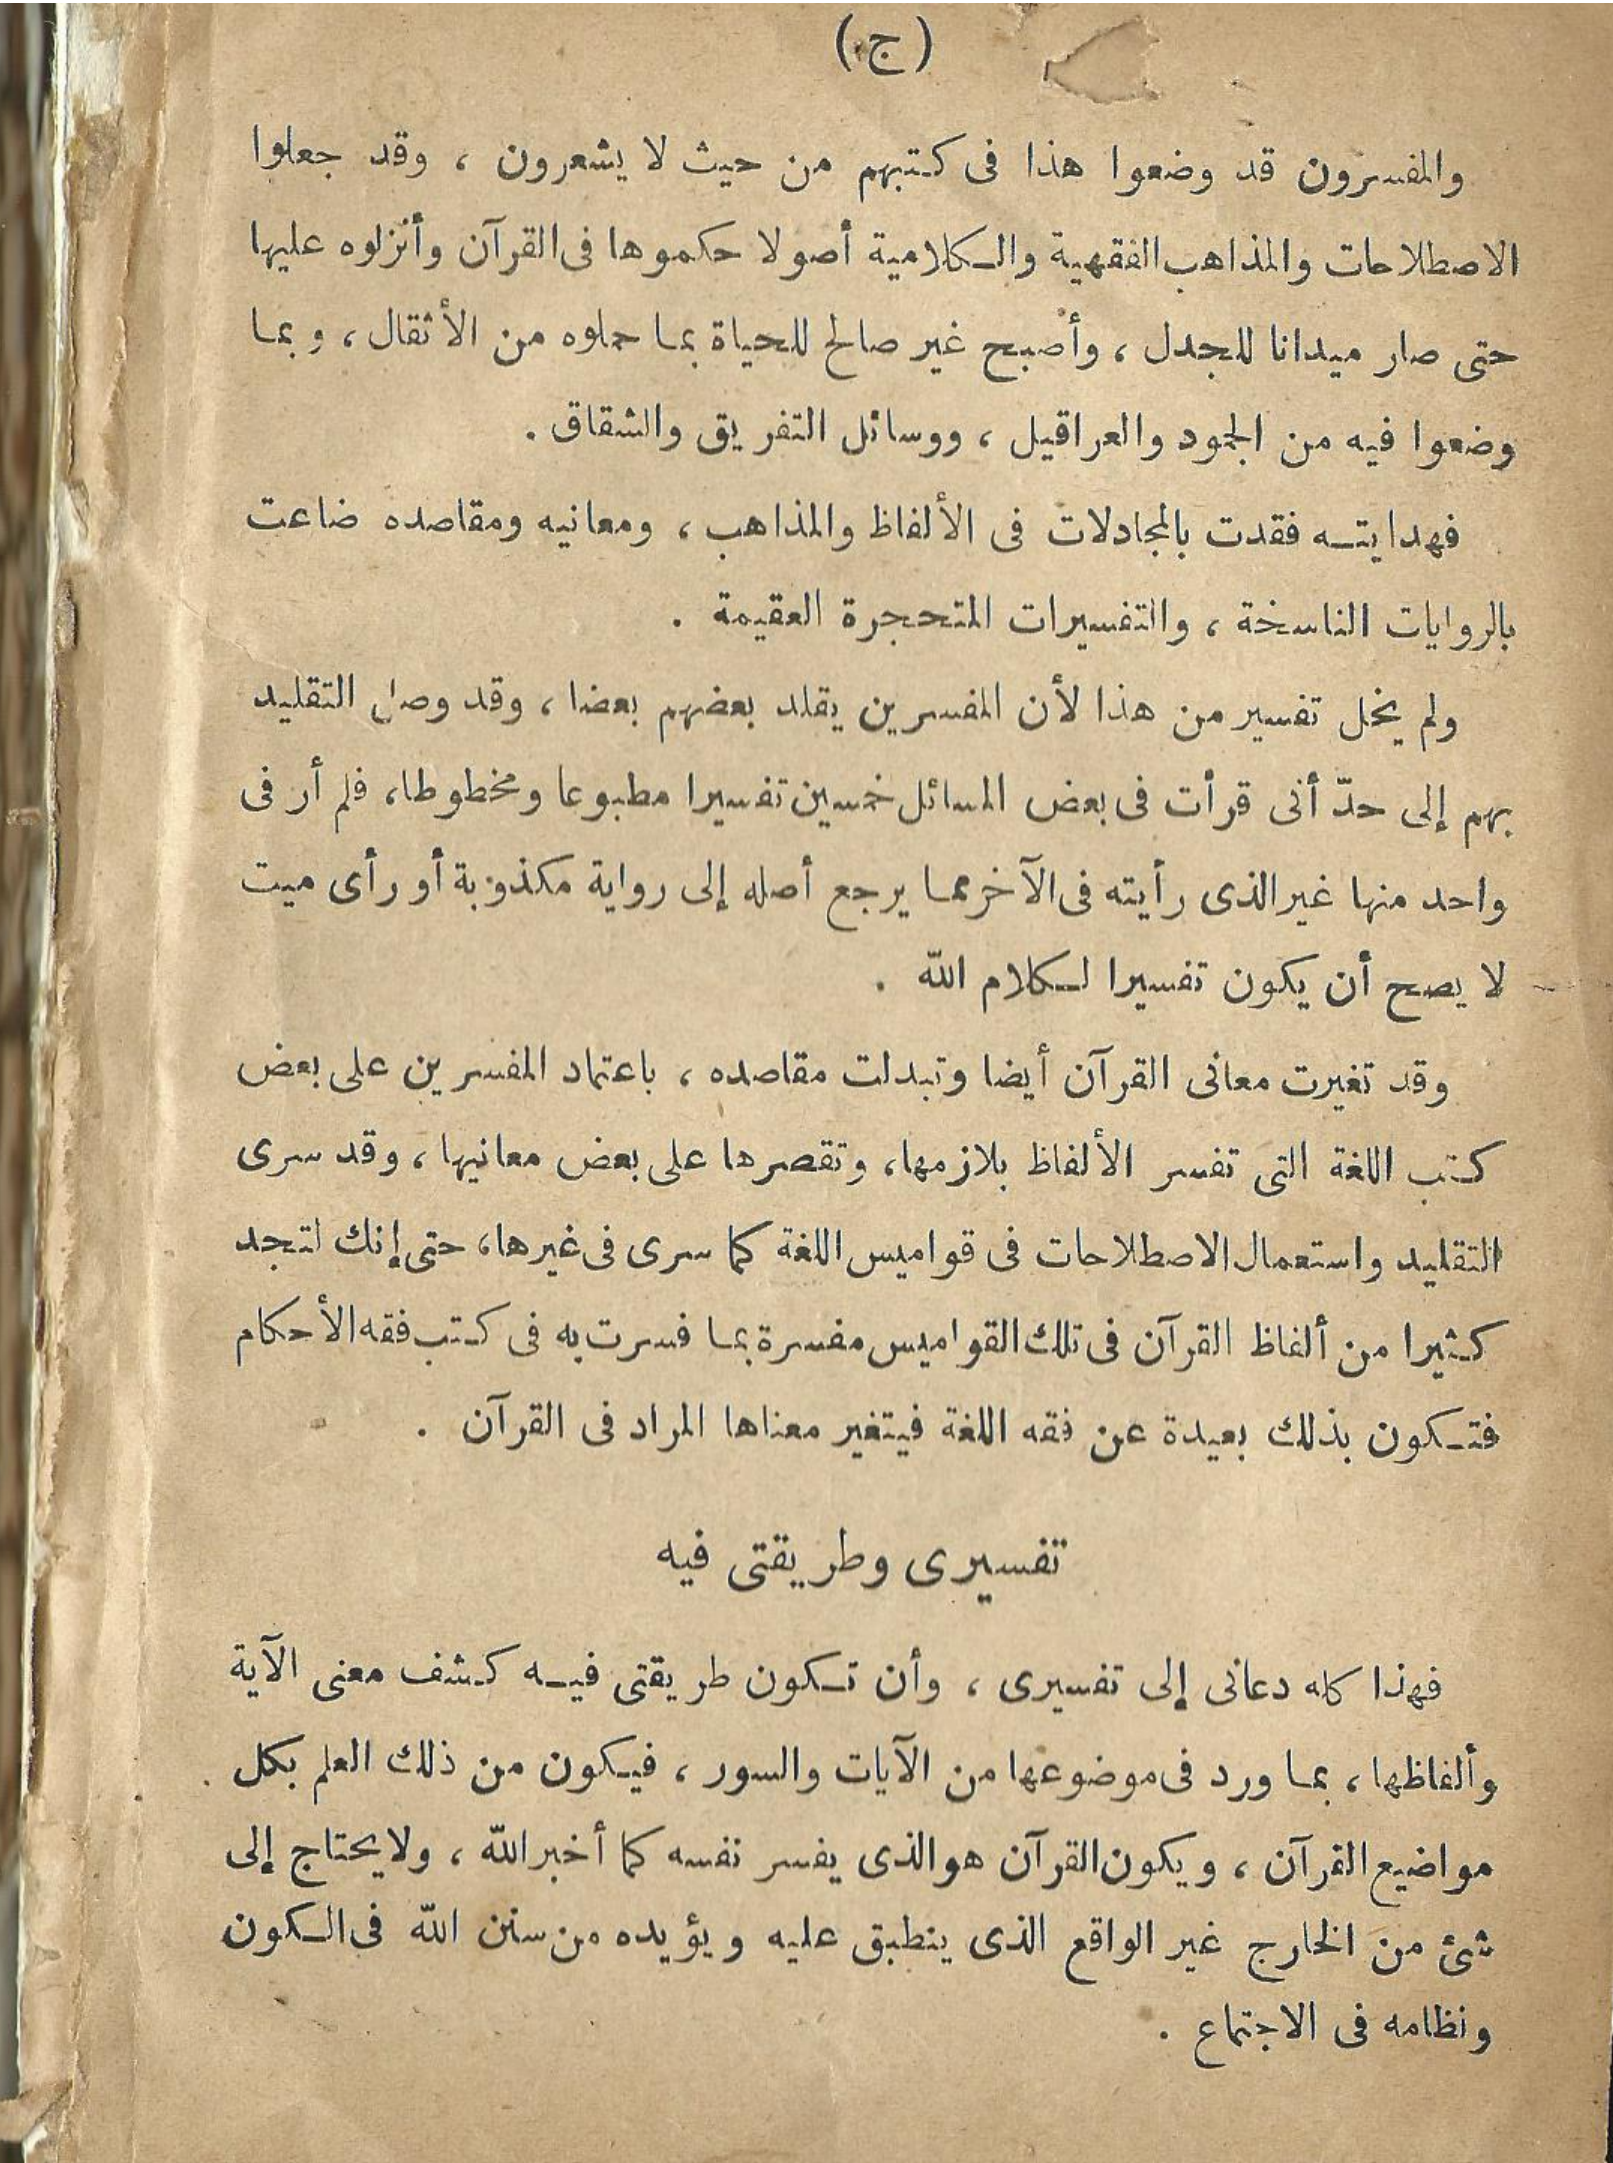 (ج)
والمفسرون قد وضعوا هذا فى كتبهم من حيث لا يشعرون ، وقد جعلوا
الاصطلاحات والمذاهب الفقهية والكلامية أصولا حكموها فى القرآن وأنزلوه عليها
حتى صار ميدانا للجدل ، وأصبح غير صالح للحياة بما حملوه من الأثقال ، وبما
وضعوا فيه من الجمود والعراقيل ، ووسائل التفريق والشقاق .
فهدايته فقدت بالمجادلات فى الألفاظ والمذاهب ، ومعانيه ومقاصده ضاعت
بالروايات الناسخة ، والتفسيرات المتحجرة العقيمة .
ولم يخل تفسير من هذا لأن المفسرين يقلد بعضهم بعضا ، وقد وصل التقليد
بهم إلى حدّ أنى قرأت فى بعض المسائل خمسين تفسيرا مطبوعا ومخطوطا، فلم أر فى
واحد منها غير الذى رأيته فى الآخر مما يرجع أصله إلى رواية مكذوبة أو رأى ميت
لا يصح أن يكون تفسيرا لكلام الله .
وقد تغيرت معانى القرآن أيضا وتبدلت مقاصده ، باعتماد المفسرين على بعض
كتب اللغة التى تفسر الألفاظ بلازمها، وتقصرها على بعض معانيها ، وقد سرى
التقليد واستعمال الاصطلاحات فى قواميس اللغة كما سرى فى غيرها، حتى إنك لتجد
كثيرا من ألفاظ القرآن فى تلك القواميس مفسرة بما فسرت به فى كتب فقه الأحكام
فتكون بذلك بعيدة عن فقه اللغة فيتغير معناها المراد فى القرآن .
تفسيرى وطريقتى فيه
فهذا كله دعانى إلى تفسيرى ، وأن تكون طريقتى فيه كشف معنى الآية
وألفاظها ، بما ورد فى موضوعها من الآيات والسور ، فيكون من ذلك العلم بكل
مواضيع القرآن ، ويكون القرآن هو الذى يفسر نفسه كما أخبر الله ، ولا يحتاج إلى
شئ من الخارج غير الواقع الذى ينطبق عليه ويؤيده من سنن الله فى الكون
ونظامه فى الاجتماع .